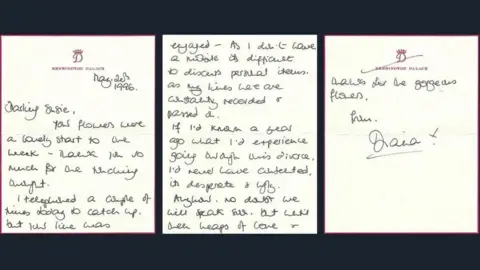 KENSINGTON PALACE
May 20th
1996.
Darling Susie,
Your flowers were
a lovely start to the
week - thank you so
much for the touching
thought.
I telephoned a couple of
times today to catch up,
but your line was
engaged - As I don't have
a mobile its difficult
to discuss personal items.
as my lines are
constantly recorded &
passed on.
If I'd known a year
ago what I'd experience
going through this divorce,
I'd never have consented,
its desperate & ugly.
Anyhow, no doubt we
will speak soon. but until
then heaps of love &
KENSINGTON PALACE
thanks for the gorgeous
flowers,
from,
Diana x